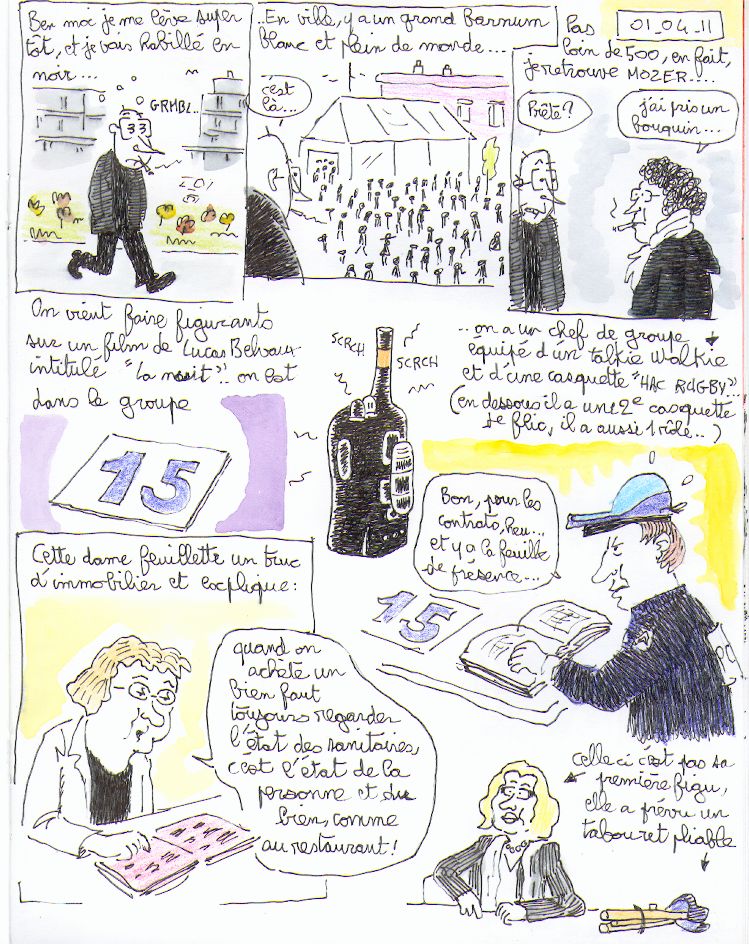 Ben moi je me lève super
tôt, et je vais habillé en
noir...
GRMBL..
..En ville, y a un grand barnum
blanc et plein de monde...
c'est
là...
01_04_11
Pas
loin de 500, en fait,
je retrouve MOZER....
Prête?
j'ai pris un
bouquin...
On vient faire figurants
sur un film de Lucas Belvaux
intitulé "la nuit".. on est
dans le groupe
15
SCRCH
SCRCH
..on a un chef de groupe
équipé d'un talkie walkie
et d'une casquette "HAC RUGBY"..
(en dessous il a une 2e casquette
de flic, il a aussi 1 rôle..)
Bon, pour les
contrats, heu...
et y a la feuille
de présence...
15
Cette dame feuillette un truc
d'immobilier et explique:
quand on
achète un
bien faut
toujours regarder
l'état des sanitaires,
c'est l'état de la
personne et du
bien, comme
au restaurant!
Celle ci c'est pas sa
première figu,
elle a prévu un
tabouret pliable